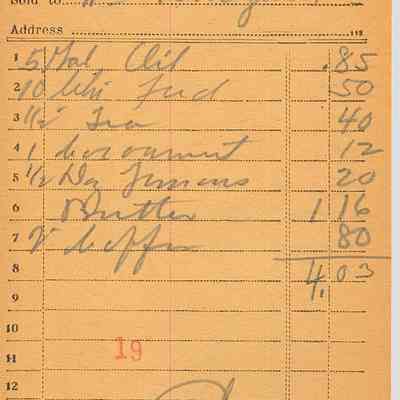 Sold to
Address
1 5 Gal. Oil .85
2 10 Chi Feed 50
3 1/2 Tea 40
4 1 12
5 1/2 Doz Lemons 20
6 Butter 1 16
7 2 Coffee 80
8 4.03
9
10
11
19
12